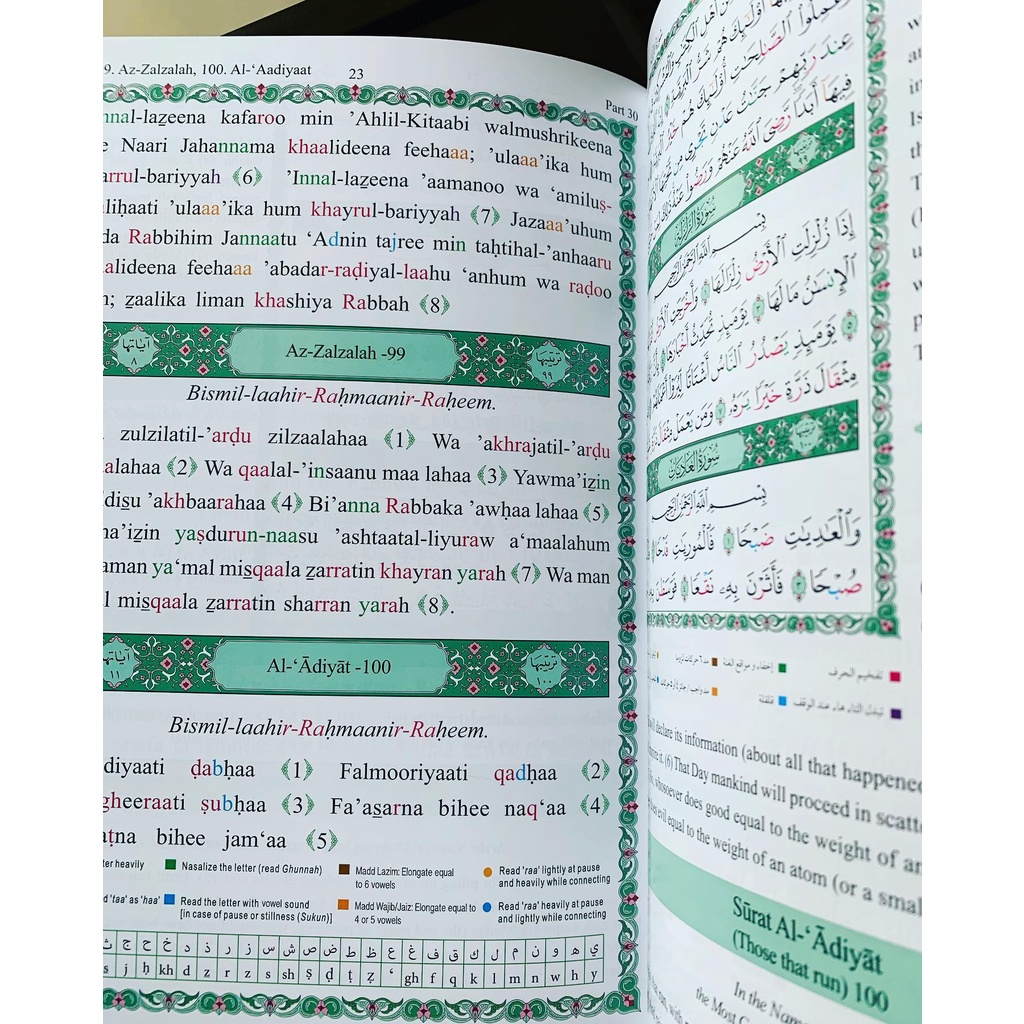 9. Az-Zalzalah, 100. Al-‘Aadiyaat 23 Part 30
nnal-lazeena kafaroo min ’Ahlil-Kitaabi walmushrikeena
e Naari Jahannama khaalideena feehaaa; ’ulaaa’ika hum
arrul-bariyyah ﴾6﴿ ’Innal-lazeena ’aamanoo wa ‘amiluṣ-
liḥaati ’ulaaa’ika hum khayrul-bariyyah ﴾7﴿ Jazaaa’uhum
da Rabbihim Jannaatu ‘Adnin tajree min taḥtihal-’anhaaru
alideena feehaaa ’abadar-raḍiyal-laahu ‘anhum wa raḍoo
n; z̲aalika liman khashiya Rabbah ﴾8﴿
آياتها ٨ Az-Zalzalah -99 ترتيبها ٩٩
Bismil-laahir-Raḥmaanir-Raḥeem.
zulzilatil-’arḍu zilzaalahaa ﴾1﴿ Wa ’akhrajatil-’arḍu
alahaa ﴾2﴿ Wa qaalal-’insaanu maa lahaa ﴾3﴿ Yawma’iz̲in
dis̲u ’akhbaarahaa ﴾4﴿ Bi’anna Rabbaka ’awḥaa lahaa ﴾5﴿
na’iz̲in yaṣdurun-naasu ’ashtaatal-liyuraw a‘maalahum
aman ya‘mal mis̲qaala z̲arratin khayran yarah ﴾7﴿ Wa man
l mis̲qaala z̲arratin sharran yarah ﴾8﴿.
آياتها ١١ Al-‘Ādiyāt -100 ترتيبها ١٠٠
Bismil-laahir-Raḥmaanir-Raḥeem.
diyaati ḍabḥaa ﴾1﴿ Falmooriyaati qadḥaa ﴾2﴿
gheeraati ṣubḥaa ﴾3﴿ Fa’as̲arna bihee naq‘aa ﴾4﴿
aṭna bihee jam‘aa ﴾5﴿
ter heavily Nasalize the letter (read Ghunnah) Madd Lazim: Elongate equal Read 'raa' lightly at pause
to 6 vowels and heavily while connecting
d 'taa' as 'haa' Read the letter with vowel sound Madd Wajib/Jaiz: Elongate equal to Read 'raa' heavily at pause
[in case of pause or stillness (Sukun)] 4 or 5 vowels and lightly while connecting
ث ج ح خ د ذ ر ز س ش ص ض ط ظ ع غ ف ق ك ل م ن و ه ي
s j ḥ kh d z r z s sh ṣ ḍ ṭ ẓ ‘ gh f q k l m n w h y
عِندَ رَبِّهِمْ جَنَّٰتُ عَدْنٍ تَجْرِى مِن
فِيهَآ أَبَدًا رَّضِىَ ٱللَّهُ عَنْهُمْ وَرَضُوا۟
سورة الزلزلة
بِسْمِ ٱللَّهِ ٱلرَّحْمَٰنِ ٱلرَّحِيمِ
إِذَا زُلْزِلَتِ ٱلْأَرْضُ زِلْزَالَهَا ١ وَأَخْرَجَتِ
ٱلْإِنسَٰنُ مَا لَهَا ٣ يَوْمَئِذٍ تُحَدِّثُ أَخْبَارَهَا
٥ يَوْمَئِذٍ يَصْدُرُ ٱلنَّاسُ أَشْتَاتًا لِّيُرَوْا۟
مِثْقَالَ ذَرَّةٍ خَيْرًا يَرَهُۥ ٧ وَمَن يَعْمَلْ
سورة العاديات
بِسْمِ ٱللَّهِ ٱلرَّحْمَٰنِ ٱلرَّحِيمِ
وَٱلْعَٰدِيَٰتِ ضَبْحًا ١ فَٱلْمُورِيَٰتِ قَدْحًا
صُبْحًا ٣ فَأَثَرْنَ بِهِۦ نَقْعًا ٤ فَوَسَطْنَ بِهِۦ
تفخيم الحرف إخفاء ومواقع الغنة
تبدل التاء هاء عند الوقف قلقلة
will declare its information (about all that happened
(6) That Day mankind will proceed in scatt
whosoever does good equal to the weight of an
does evil equal to the weight of an atom (or a smal
Sūrat Al-‘Ādiyāt
(Those that run) 100
In the Name
the Most G